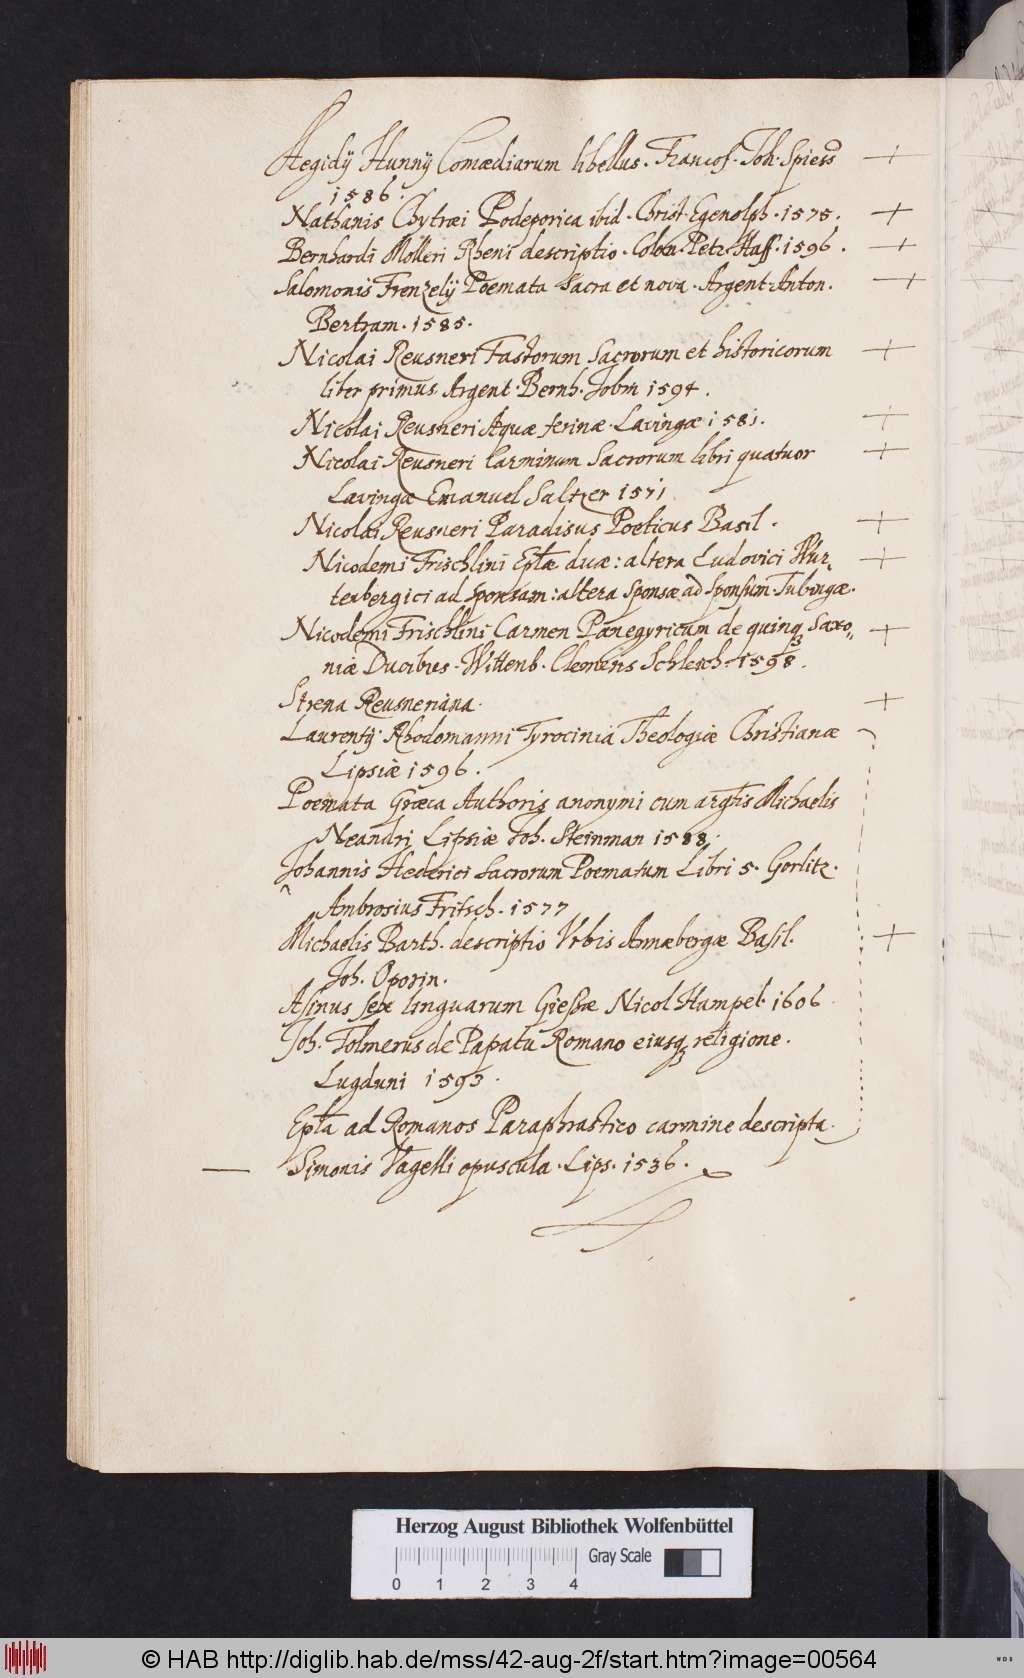 Aegidÿ Hunnÿ Comœdiarum libellus. Francof. Joh. Spiess
1586.
Nathanis Chytræi Hodeporica ibid. Christ. Egenolph. 1575.
Bernhardi Molleri Rheni descriptio. Colon. Petr. Haff. 1596.
Salomonis Frenzelÿ Poemata Sacra et nova. Argent. Anton.
Bertram. 1585.
Nicolai Reusneri Fastorum Sacrorum et historicorum
liber primus. Argent. Bernh. Jobin 1594.
Nicolai Reusneri Aquæ ferinæ. Lavingæ 1581.
Nicolai Reusneri Carminum Sacrorum libri quatuor
Lavingæ Emanuel Saltzer 1571
Nicolai Reusneri Paradisus Poeticus Basil.
Nicodemi Frischlini Eplæ duæ: altera Ludovici Wur-
tenbergici ad Sponsam: altera Sponsæ ad Sponsum. Tubingæ.
Nicodemi Frischlini Carmen Panegyricum de quinq3 Saxo-
niæ Ducibus. Wittenb. Clemens Schleich. 1598.
Strena Reusneriana.
Laurentÿ Rhodomanni Tyrocinia Theologiæ Christianæ
Lipsiæ 1596.
Poemata Græca Authoris anonymi cum argtis Michaelis
Neandri Lipsiæ Joh. Steinman 1588.
Johannis Hederici Sacrorum Poematum Libri 5. Gorlitz.
Ambrosius Fritsch. 1577
Michaelis Barth. descriptio Urbis Annæbergæ Basil.
Joh. Oporin.
Asinus sex linguarum Gießæ Nicol Hampel. 1606
Joh. Tolmerus de Papatu Romano eiusq3 religione.
Lugduni 1593.
Epla ad Romanos Paraphrastico carmine descripta.
Simonis Vagelli opuscula. Lips. 1536.
Herzog August Bibliothek Wolfenbüttel
Gray Scale
0 1 2 3 4
© HAB http://diglib.hab.de/mss/42-aug-2f/start.htm?image=00564